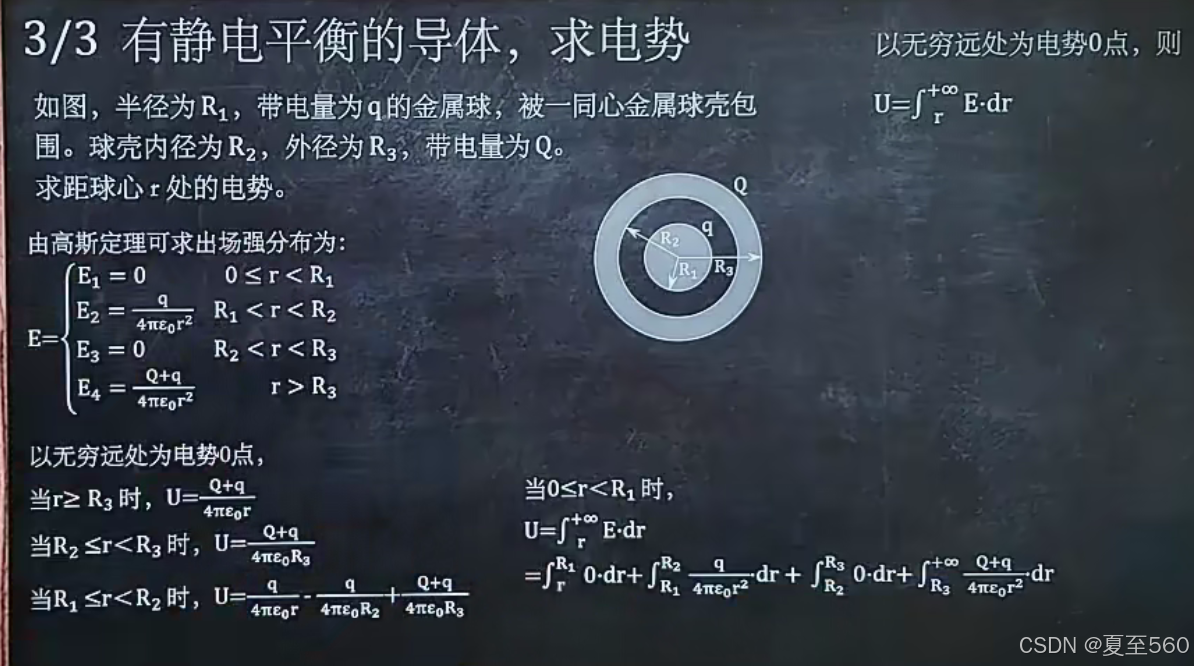 3/3 有静电平衡的导体，求电势
如图，半径为R₁，带电量为q的金属球，被一同心金属球壳包
围。球壳内径为R₂，外径为R₃，带电量为Q。
求距球心r处的电势。
以无穷远处为电势0点，则
U=∫ᵣ⁺∞ E·dr
Q
q
R₂
R₁
R₃
由高斯定理可求出场强分布为：
E={
E₁ = 0 0 ≤ r < R₁
E₂ = q/4πε₀r² R₁ < r < R₂
E₃ = 0 R₂ < r < R₃
E₄ = Q+q/4πε₀r² r > R₃
以无穷远处为电势0点，
当r≥ R₃ 时，U=Q+q/4πε₀r
当R₂ ≤r<R₃ 时，U=Q+q/4πε₀R₃
当R₁ ≤r<R₂ 时，U=q/4πε₀r-q/4πε₀R₂+Q+q/4πε₀R₃
当0≤r<R₁ 时，
U=∫ᵣ⁺∞ E·dr
=∫ᵣ^R₁ 0·dr+∫_R₁^R₂ q/4πε₀r²·dr + ∫_R₂^R₃ 0·dr+∫_R₃^+∞ Q+q/4πε₀r²·dr
CSDN @夏至560